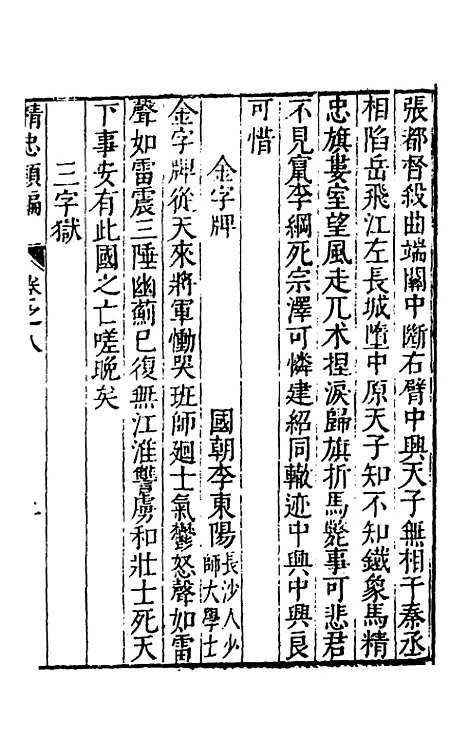 張都督殺曲端關中斷右臂中興天子無相干秦丞
相陷岳飛江左長城墮中原天子知不知鐵象馬精
忠旗婁室望風走兀术揑淚歸旗折馬斃事可悲君
不見竄李綱死宗澤可憐建紹同轍迹中興中興良
可惜
金字牌 國朝李東陽長沙人少師大學士
金字牌從天來將軍慟哭班師廻士氣鬱怒聲如雷
聲如雷震三陲幽薊已復無江淮讐虜和壯士死天
下事安有此國之亡嗟晚矣
三字獄
精忠類編 卷之八